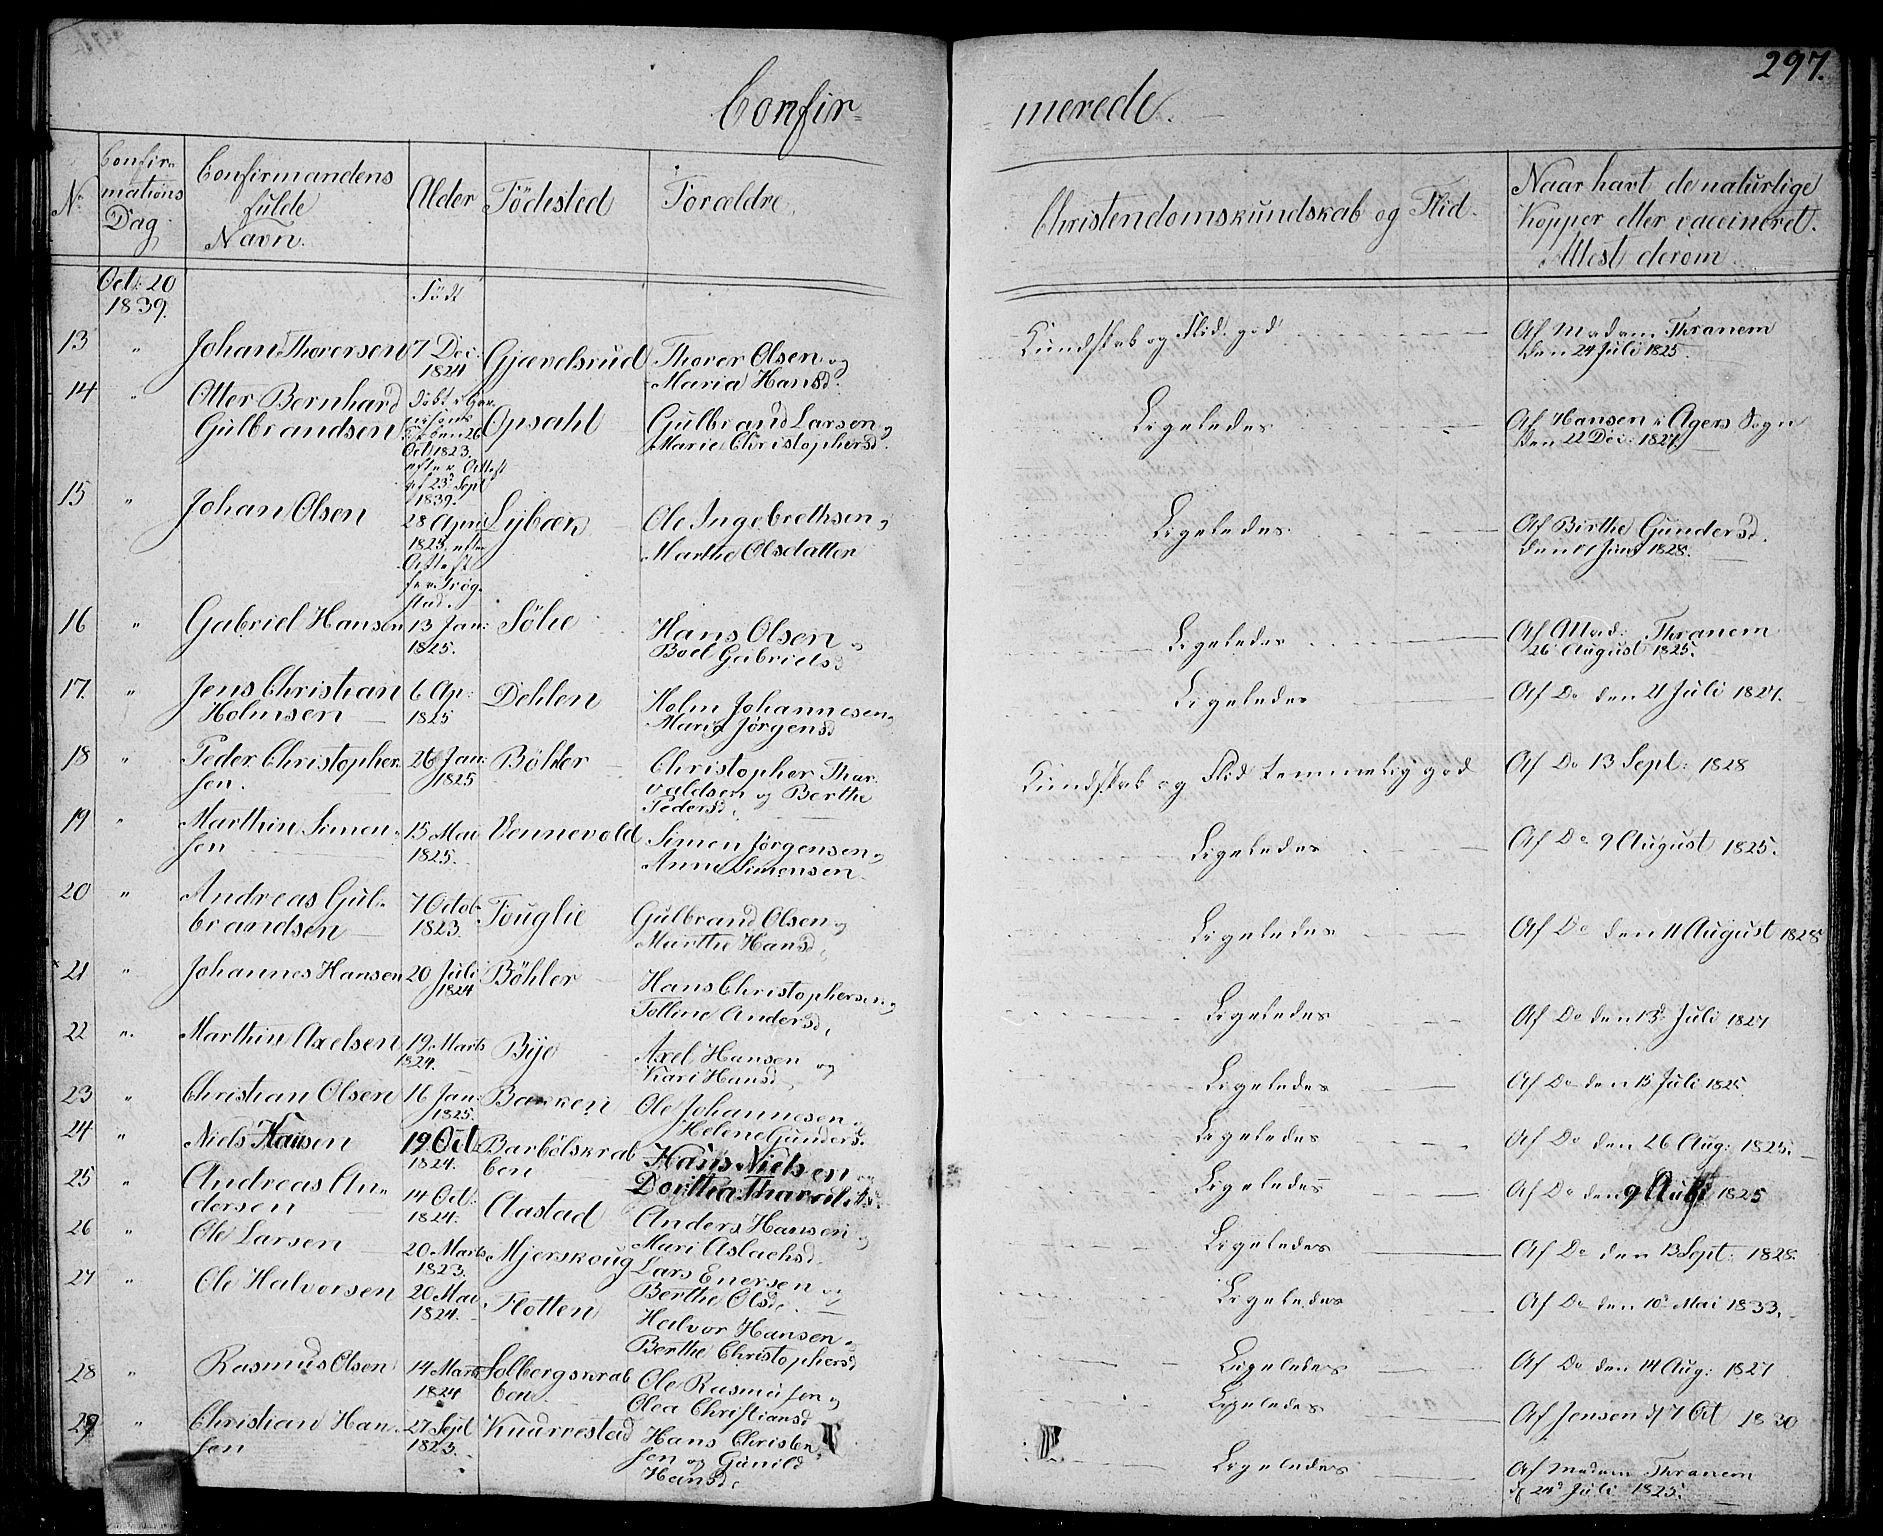 297.
Confir-
merede.
No
Confir-
mations
Dag
Confirmandens
fulde
Navn.
Alder
Födested
Forældre.
Christendomskundskab og Flid.
Naar havt de naturlige
Kopper eller vaccineret.
Attest derom
Oct: 20
1839.
Födt
13 " Johan Thorersen 7 Dec: Gjævelsrud Thorer Olsen og
1824 Maria Hansd.
Kundskab og Flid god Af Madam Thranem
den 24 Juli 1825.
14 " Otter Bernhard döbt i Gar
Gulbrandsen nisons Opsahl Gulbrand Larsen og
den 26 Marie Christophersd.
Oct 1823.
efter Attest
af 23d Sept
1839.
Ligeledes Af Hansen i Agers Sogn
den 22 Dec: 1827.
15 " Johan Olsen 28 April Lybæk Ole Ingebrethsen og
1825, efter Marthe Olsdatter
Attest
fra Trög
stad.
Ligeledes Af Birthe Gundersd.
den 17 Juni 1828.
16 " Gabriel Hansen 13 Jan: Sölie Hans Olsen og
1825. Boel Gabrielsd
Ligeledes Af Mad: Thranem
26 August 1825.
17. " Jens Christian 6 Ap: Dehlen Holm Johannesen og
Holmsen 1825 Maria Jörgensd
Ligeledes Af Do den 21 Juli 1827.
18 " Peder Christopher 26 Jan: Böhler Christopher Thor
sen. 1825 valdsen og Berthe
Pedersd.
Kundskab og Flid temmelig god Af Do 13 Sept: 1828
19 " Marthin Simen- 15 Mai Vennevold Simen Jörgensen og
sen 1825. Anne Simensen.
Ligeledes Af Do 9 August 1825.
20 " Andreas Gul- 7 Octob. Fouglie Gulbrand Olsen og
brandsen 1823. Marthe Hansd.
Ligeledes Af Do den 11 August 1828
21 " Johannes Hansen 20 Juli Böhler Hans Christophersen og
1824 Tolline Andersd.
Ligeledes Af Do den 13d Juli 1827
22 " Marthin Axelsen 19 Marts Bye Axel Hansen og
1824. Kari Hansd
Ligeledes Af Do den 15 Juli 1825
23 " Christian Olsen 16 Jan: Bakken Ole Johannesen
1825. Helene Gundersd.
Ligeledes Af Do den 26 Aug: 1825.
24 " Niels Hansen 19 Oct. Barbölskrab Hans Nielsen og
1824. ben Dorthea
Ligeledes Af Do den 9 1825
25 " Andreas An- 14 Oct: Aastad Anders Hansen og
dersen 1824. Mari Aslachsd.
Ligeledes Af Do den 13 Sept: 1828.
26 " Ole Larsen 20 Marts Mjerskoug Lars Enersen og
1823. Berthe Olsd.
Ligeledes Af Do den 10d Mai 1833.
27 " Ole Halvorsen 20 Mai Flotten Halvor Hansen og
1824. Berthe Christophersd
Ligeledes Af Do den 14 Aug: 1827
28 " Rasmus Olsen 14 Marts Solbergskrab Ole Rasmusen og
1824 ben Olea Christiansd
Ligeledes Af Jensen 7 Oct 1830
29 " Christian Han 27 Sept Knarrestad Hans Christen
sen 1823. sen og Gunild
Hansd.
Ligeledes Af Madam Thranem
24d Juli 1825.